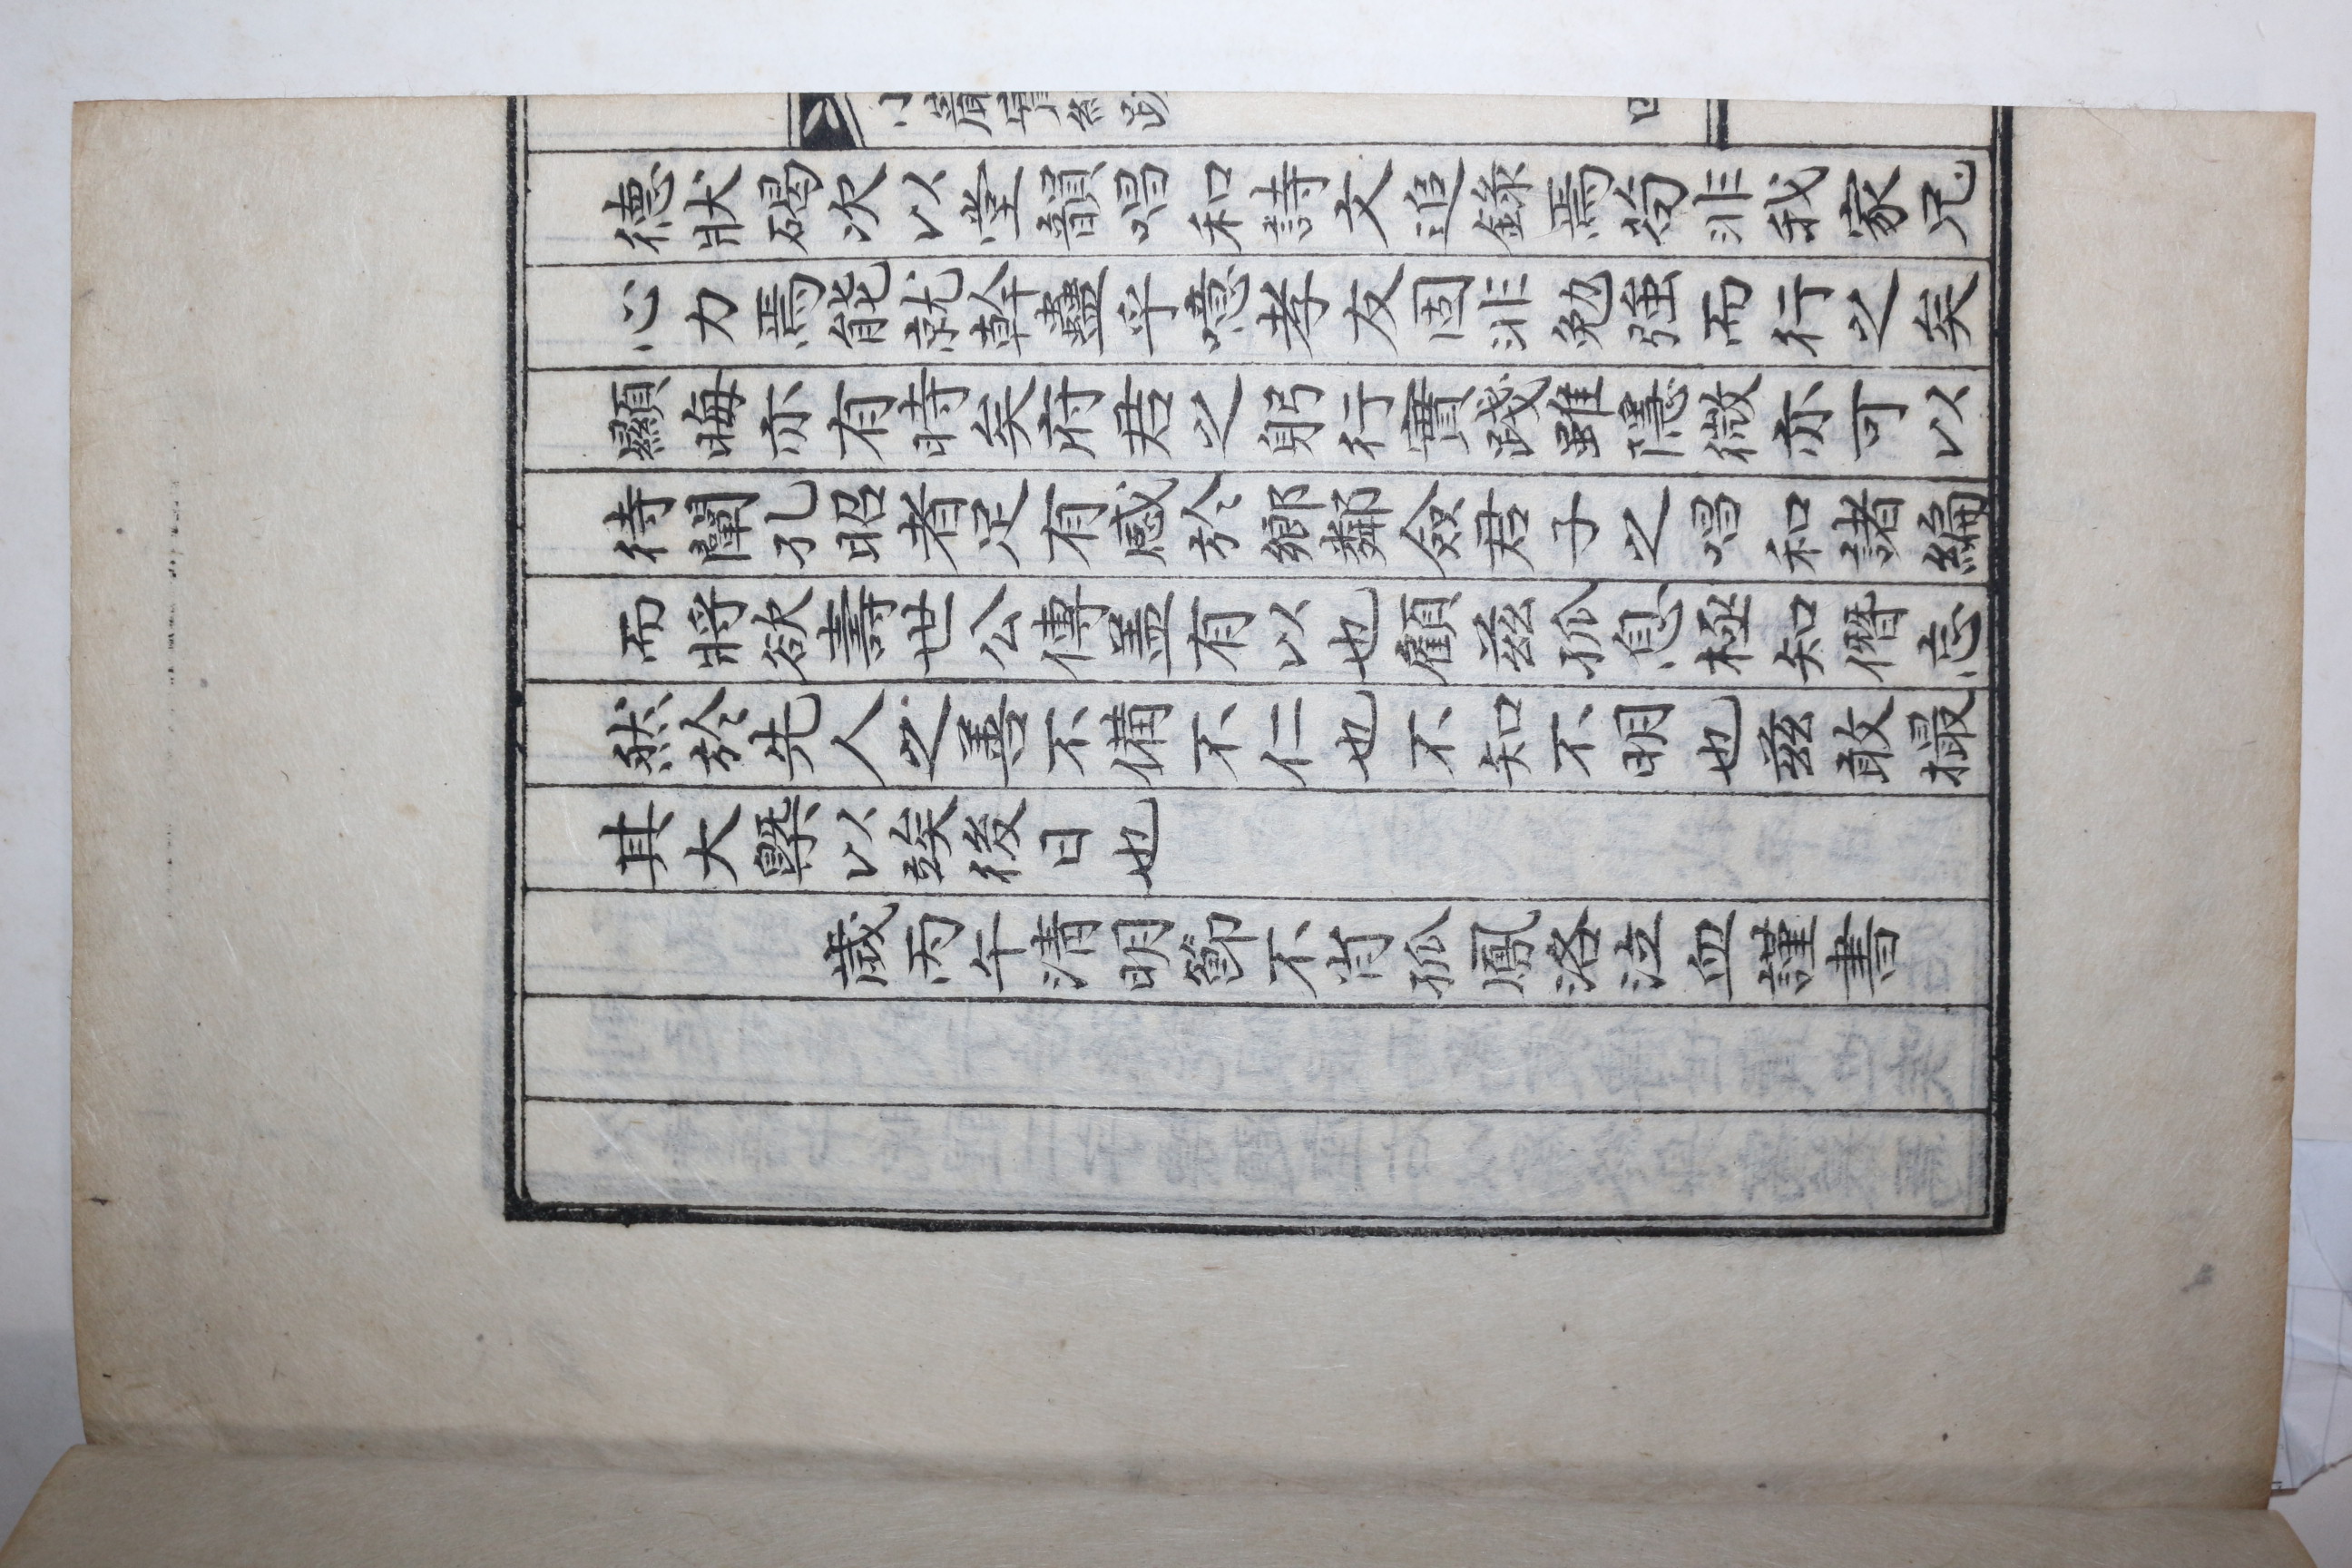 小巖實紀跋
德狀碣次以堂韻唱和詩文追錄焉苟非我家兄
心力焉能就幹蠱乎噫孝友固非勉強而行之矣
顯晦亦有時矣府君之躬行實踐雖隱微亦可以
待闡孔昭者足有感於鄉鄰僉君子之唱和諸編
而將欲壽世公傳盖有以也顧兹孤息極知僭忘
然於先人之善不備不仁也不知不明也兹敢撮
其大槩以竢後日也
歲丙午清明節不肖孤鳳洛泣血謹書